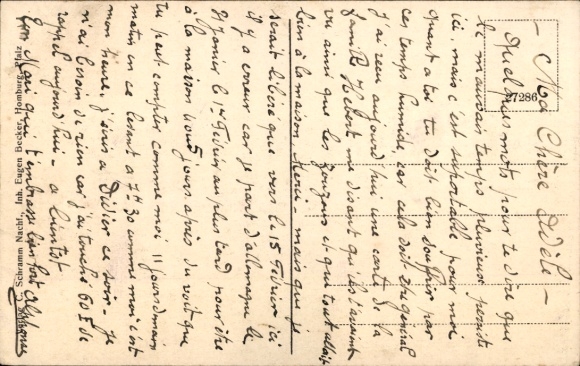 - Ma Chère Adèle -
Quelques mots pour te dire que
le mauvais temps pluvieux persiste
ici, mais c'est supportable pour moi
quant a toi tu doit bien souffrir par
ces temps humide car cela doit etre général
j'ai reçu aujourd'hui une carte de la
famille Hébert me disant qu'ils t'avaient
vu ainsi que les et que tout allait
bien à la maison - mais que je
serait libéré que vers le 15 Février ici
il y a erreur car je part d'allemagne le
31 Janvier le 1er Février au plus tard pour être
à la maison 4 ou 5 jours après du voit que
tu peut compter comme moi 11 jours demain
matin ce serait a 7h30 comme moi c'est
mon heure, j'écris a Didier ce soir - Je
n'ai besoin de rien car j'ai touché 60 F de
rappel aujourd'hui - a bientôt
Ton qui t'embrasse bien fort Alphonse
27286
Schramm Nachf., Inh. Eugen Becker, Homburg, Pfalz